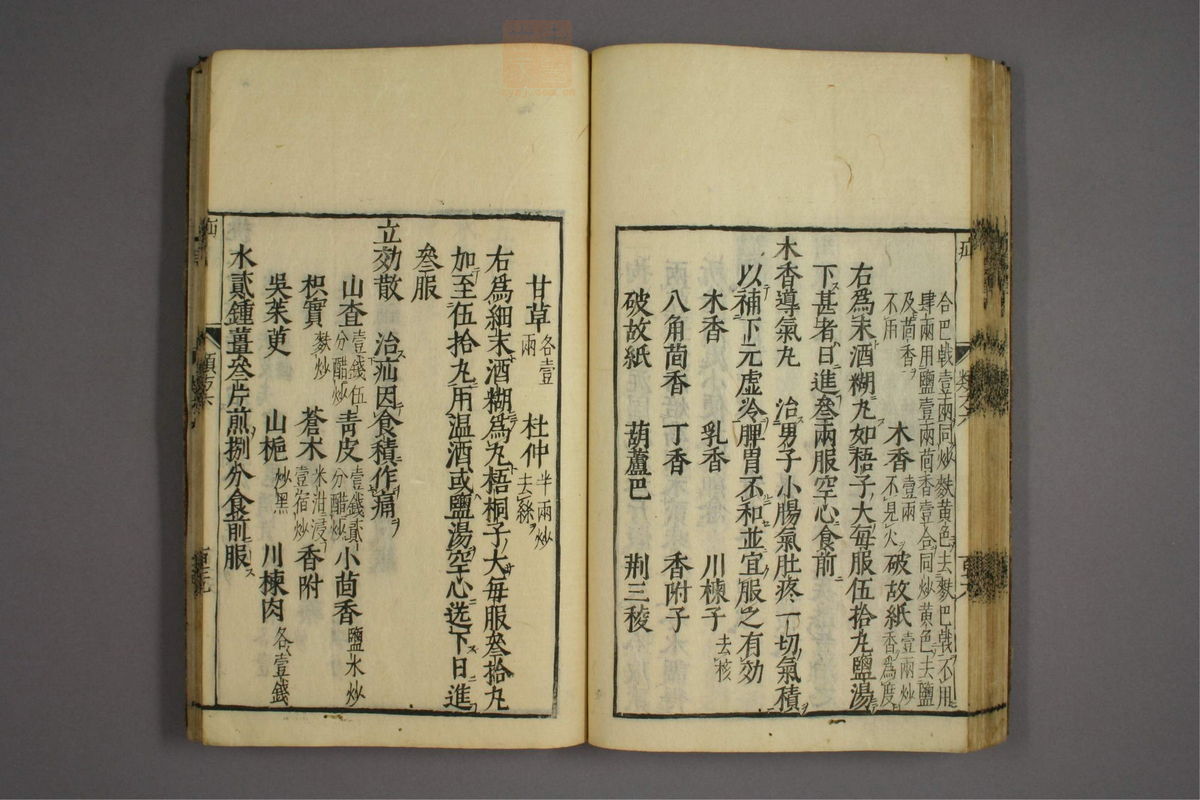 合巴戟壹兩同炒麩黃色去麩巴戟不用
肆兩用鹽壹兩茴香壹合同炒黃色去鹽
及茴香
不用
木香壹兩不見火
破故紙壹兩炒香爲度
右爲末酒糊丸如梧子大每服伍拾丸鹽湯
下甚者日進叁兩服空心食前
木香導氣丸　治男子小腸氣肚疼一切氣積
以補下元虛冷脾胃不和並宜服之有効
木香　乳香　川楝子去核
八角茴香　丁香　香附子
破故紙　葫蘆巴　荆三稜
甘草各壹兩　杜仲半兩炒去絲
右爲細末酒糊爲丸梧桐子大每服叁拾丸
加至伍拾丸用温酒或鹽湯空心送下日進
叁服
立効散　治疝因食積作痛
山査壹錢伍分醋炒　青皮壹錢貳分醋炒　小茴香鹽水炒
枳實麩炒　蒼木米泔浸壹宿炒　香附
吳茱萸　山梔炒黑　川楝肉各壹錢
水貳鍾薑叁片煎捌分食前服